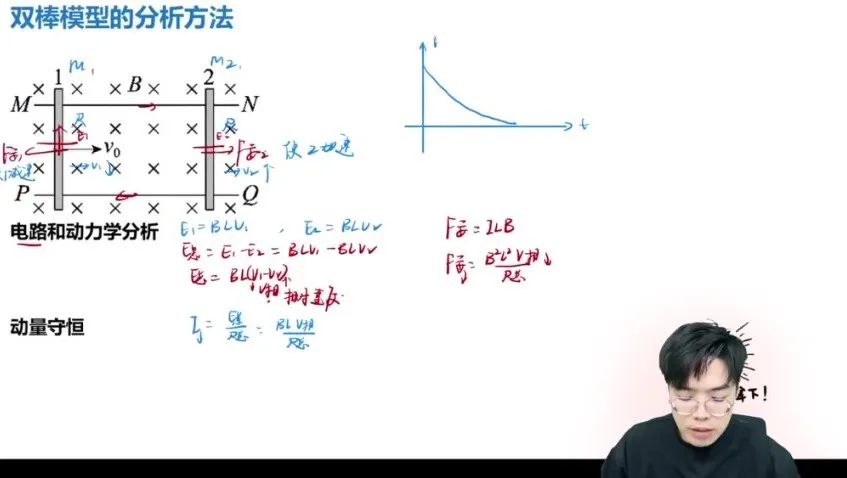 双棒模型的分析方法
m₁ m₂
1 B 2
M N
R R
E₁ E₂
F安₁ v₀ F安₂ 使2加速
减速 v₁↓ v₂↑
P Q
i
t
电路和动力学分析 E₁=BLV₁ , E₂=BLV₂
E总=E₁-E₂=BLV₁-BLV₂
E总=BL(V₁-V₂)
V相 相对速度
F安=ILB
F安=B²L²V相↓/R总
动量守恒 I=E总/R总=BLV相/R总
下!